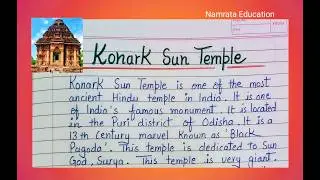 Namrata Education
Konark Sun Temple
Konark Sun Temple is one of the most
ancient Hindu temple in India. It is one
of India's famous monument. It is located
in the Puri district of Odisha. It is a
13th Century marvel known as 'Black
Pagoda'. This temple is dedicated to Sun
God, Surya. This temple is very giant.